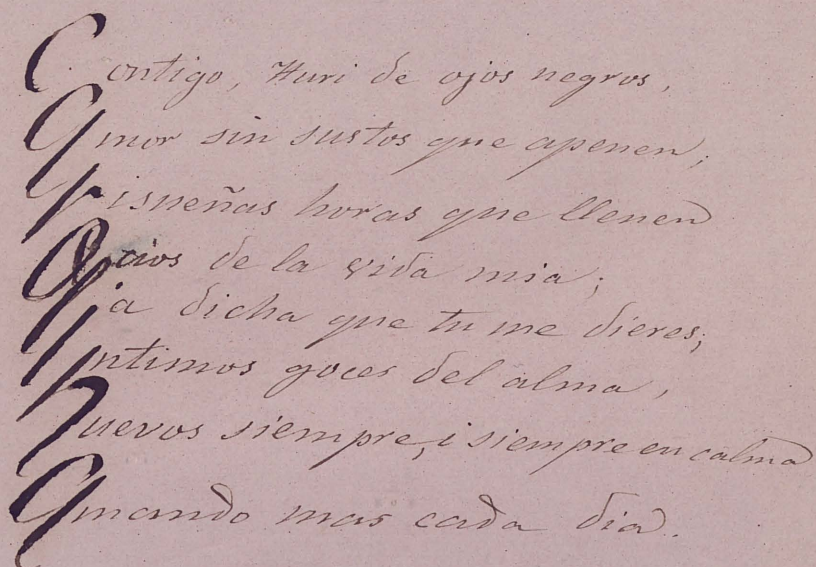 Contigo, Huri de ojos negros,
Amor sin sustos que apenen;
Risueñas horas que llenen
Ocios de la vida mia;
La dicha que tu me dieres;
Intimos goces del alma,
Nuevos siempre, i siempre en calma
Amando mas cada dia.